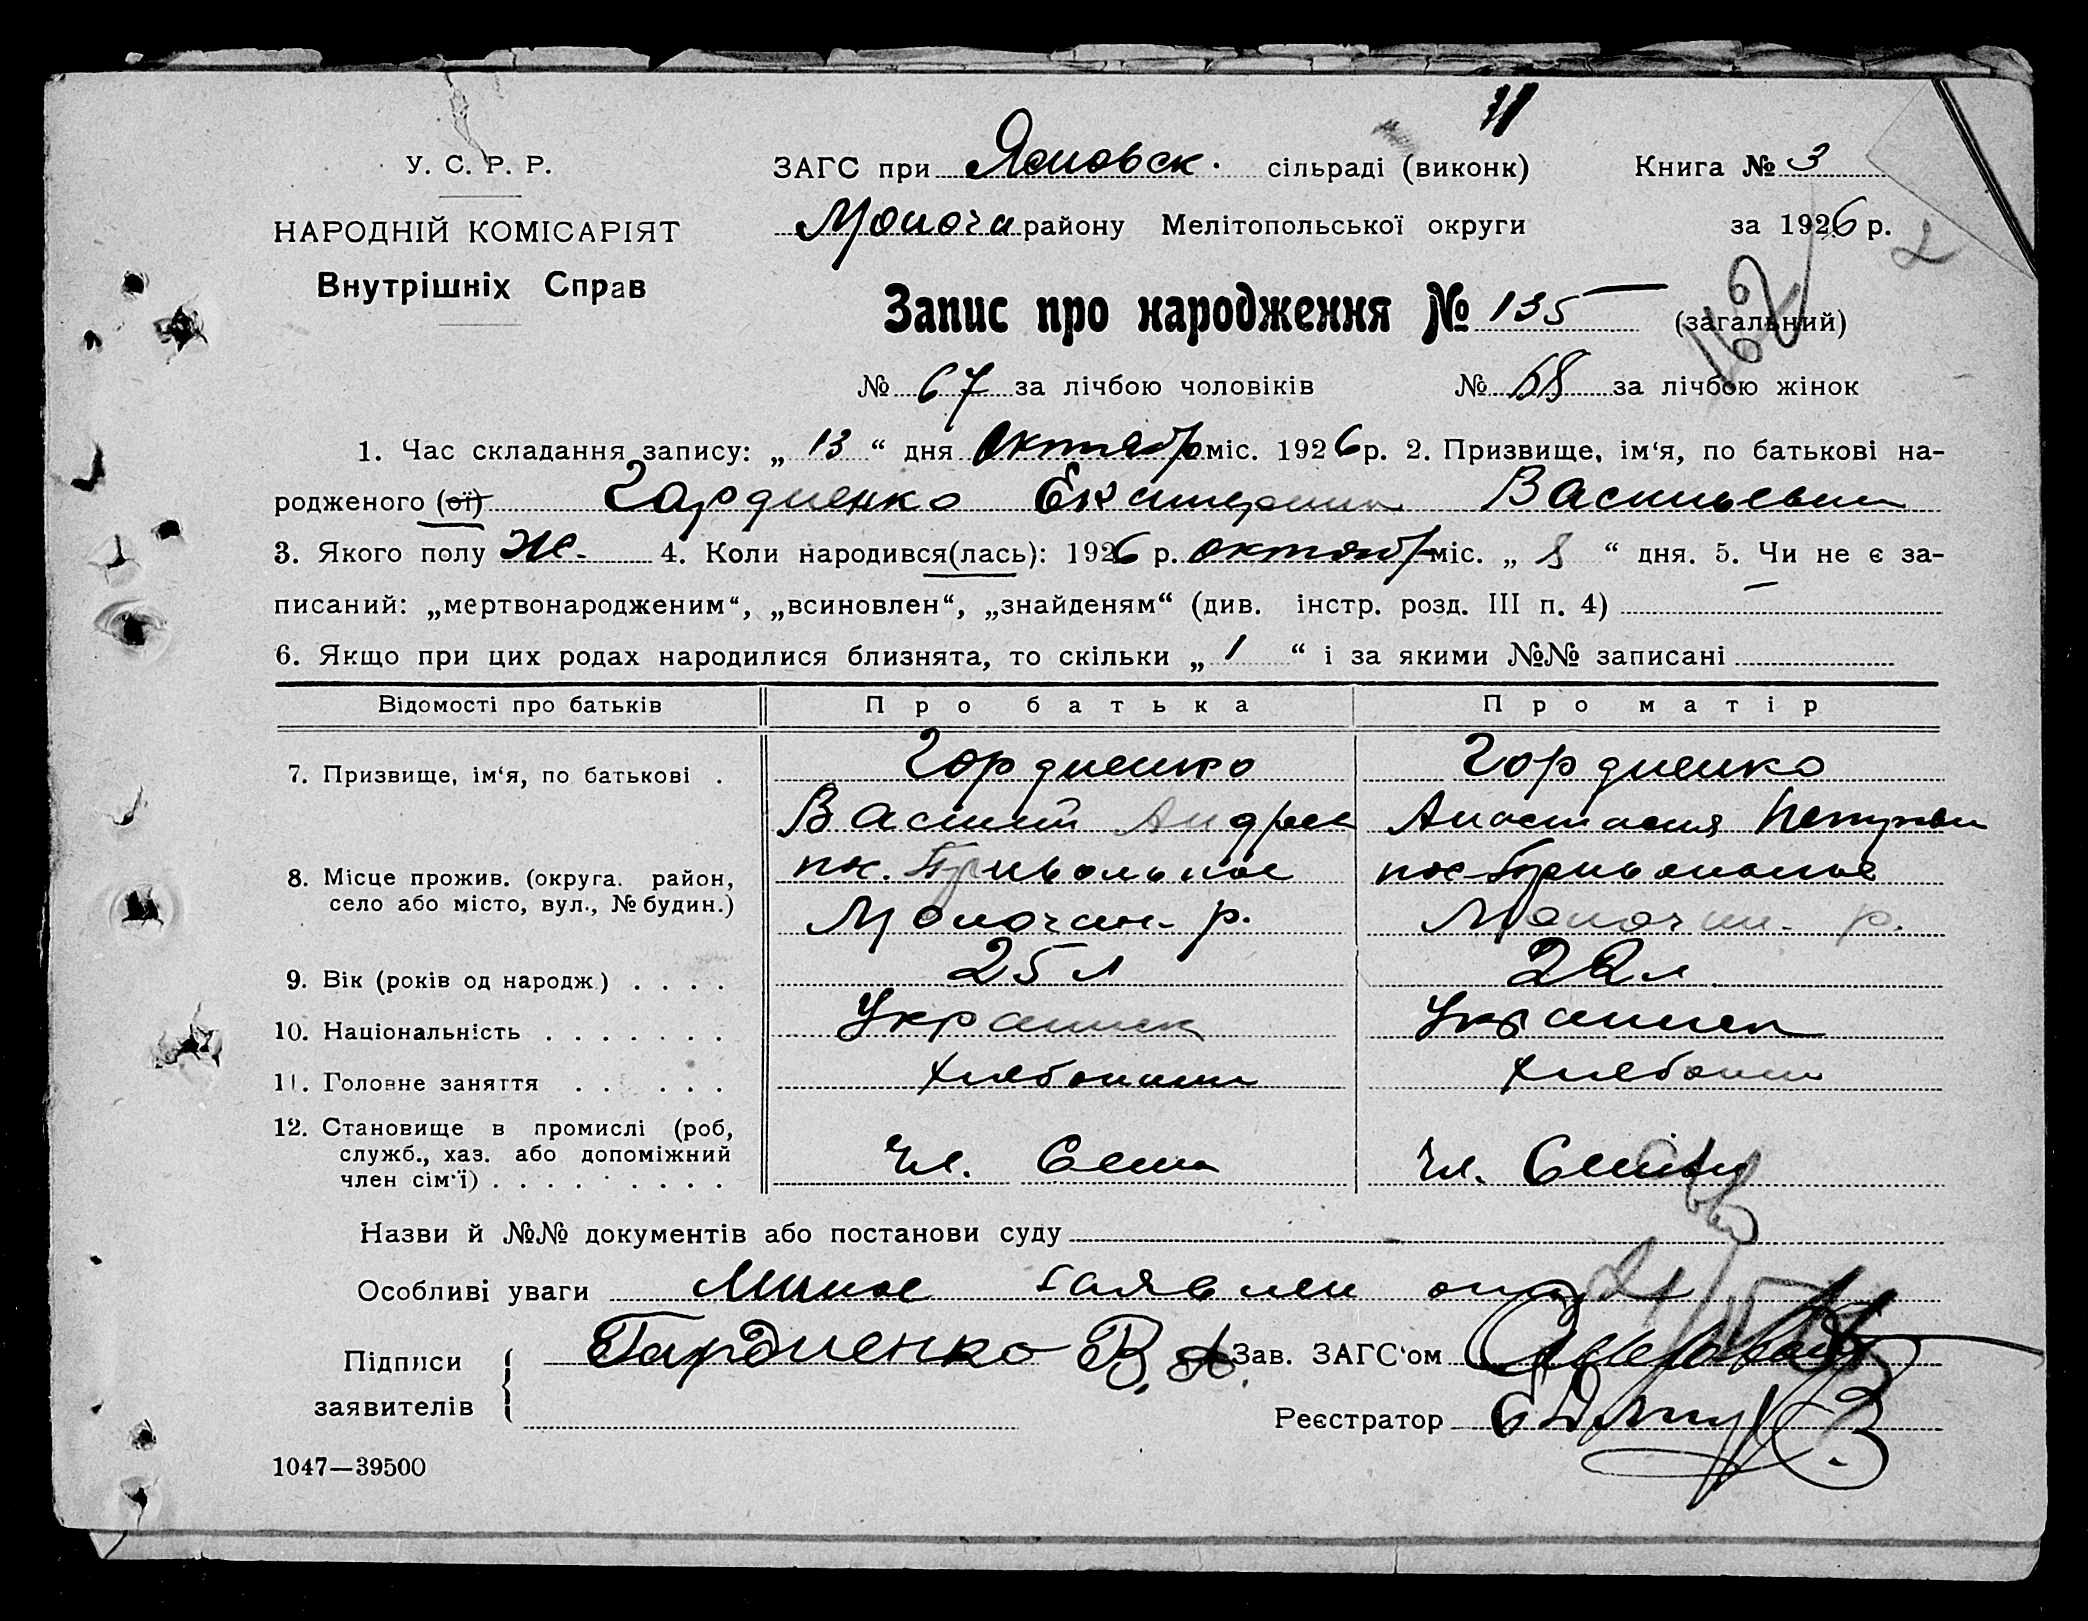 У. С. Р. Р.
НАРОДНІЙ КОМІСАРІЯТ
Внутрішніх Справ
ЗАГС при сільраді (виконк) Книга № 3
району Мелітопольської округи за 1926 р.
2
Запис про народження № 135 (загальний)
162
№ 67 за лічбою чоловіків № 68 за лічбою жінок
1. Час складання запису: „ 13 “ дня Октябр міс. 1926 р. 2. Призвище, ім‘я, по батькові на-
родженого (ої) Гордиенко Екатерина Васильевна
3. Якого полу Ж. 4. Коли народився(лась): 1926 р. октябр міс. „ 8 “ дня. 5. Чи не є за-
писаний: „мертвонародженим“, „всиновлен“, „знайденям“ (див. інстр. розд. III п. 4) —
6. Якщо при цих родах народилися близнята, то скільки „ 1 “ і за якими №№ записані
Відомості про батьків Про батька Про матір
7. Призвище, ім‘я, по батькові . Гордиенко Гордиенко
Василий Андрее Анастасия
8. Місце прожив. (округа. район, село або місто, вул., № будин.) Привольное
р. р.
9. Вік (років од народж.) . . . . 25 л 22 л
10. Національність . . . . . . . Украинск Украинск
11. Головне заняття . . . . . .
12. Становище в промислі (роб, служб., хаз. або допоміжний член сім‘ї) . . . . . . . . . Чл. Семи Чл. Семьи
Назви й №№ документів або постанови суду
Особливі уваги
Підписи Гардиенко В. А. Зав. ЗАГС‘ом
заявителів Реєстратор
1047—39500